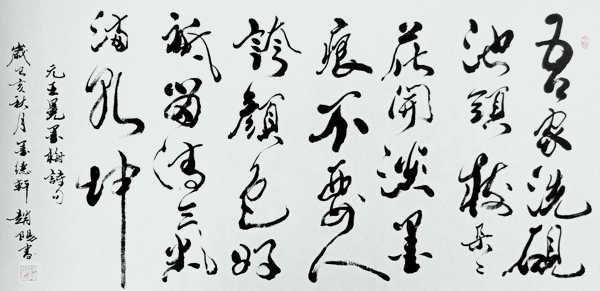 吾家洗硯
池頭樹朵々
花開淡墨
痕不要人
誇顏色好
祇留清氣
滿乾坤
元王冕墨梅詩句
歲己亥秋月墨軒趙書